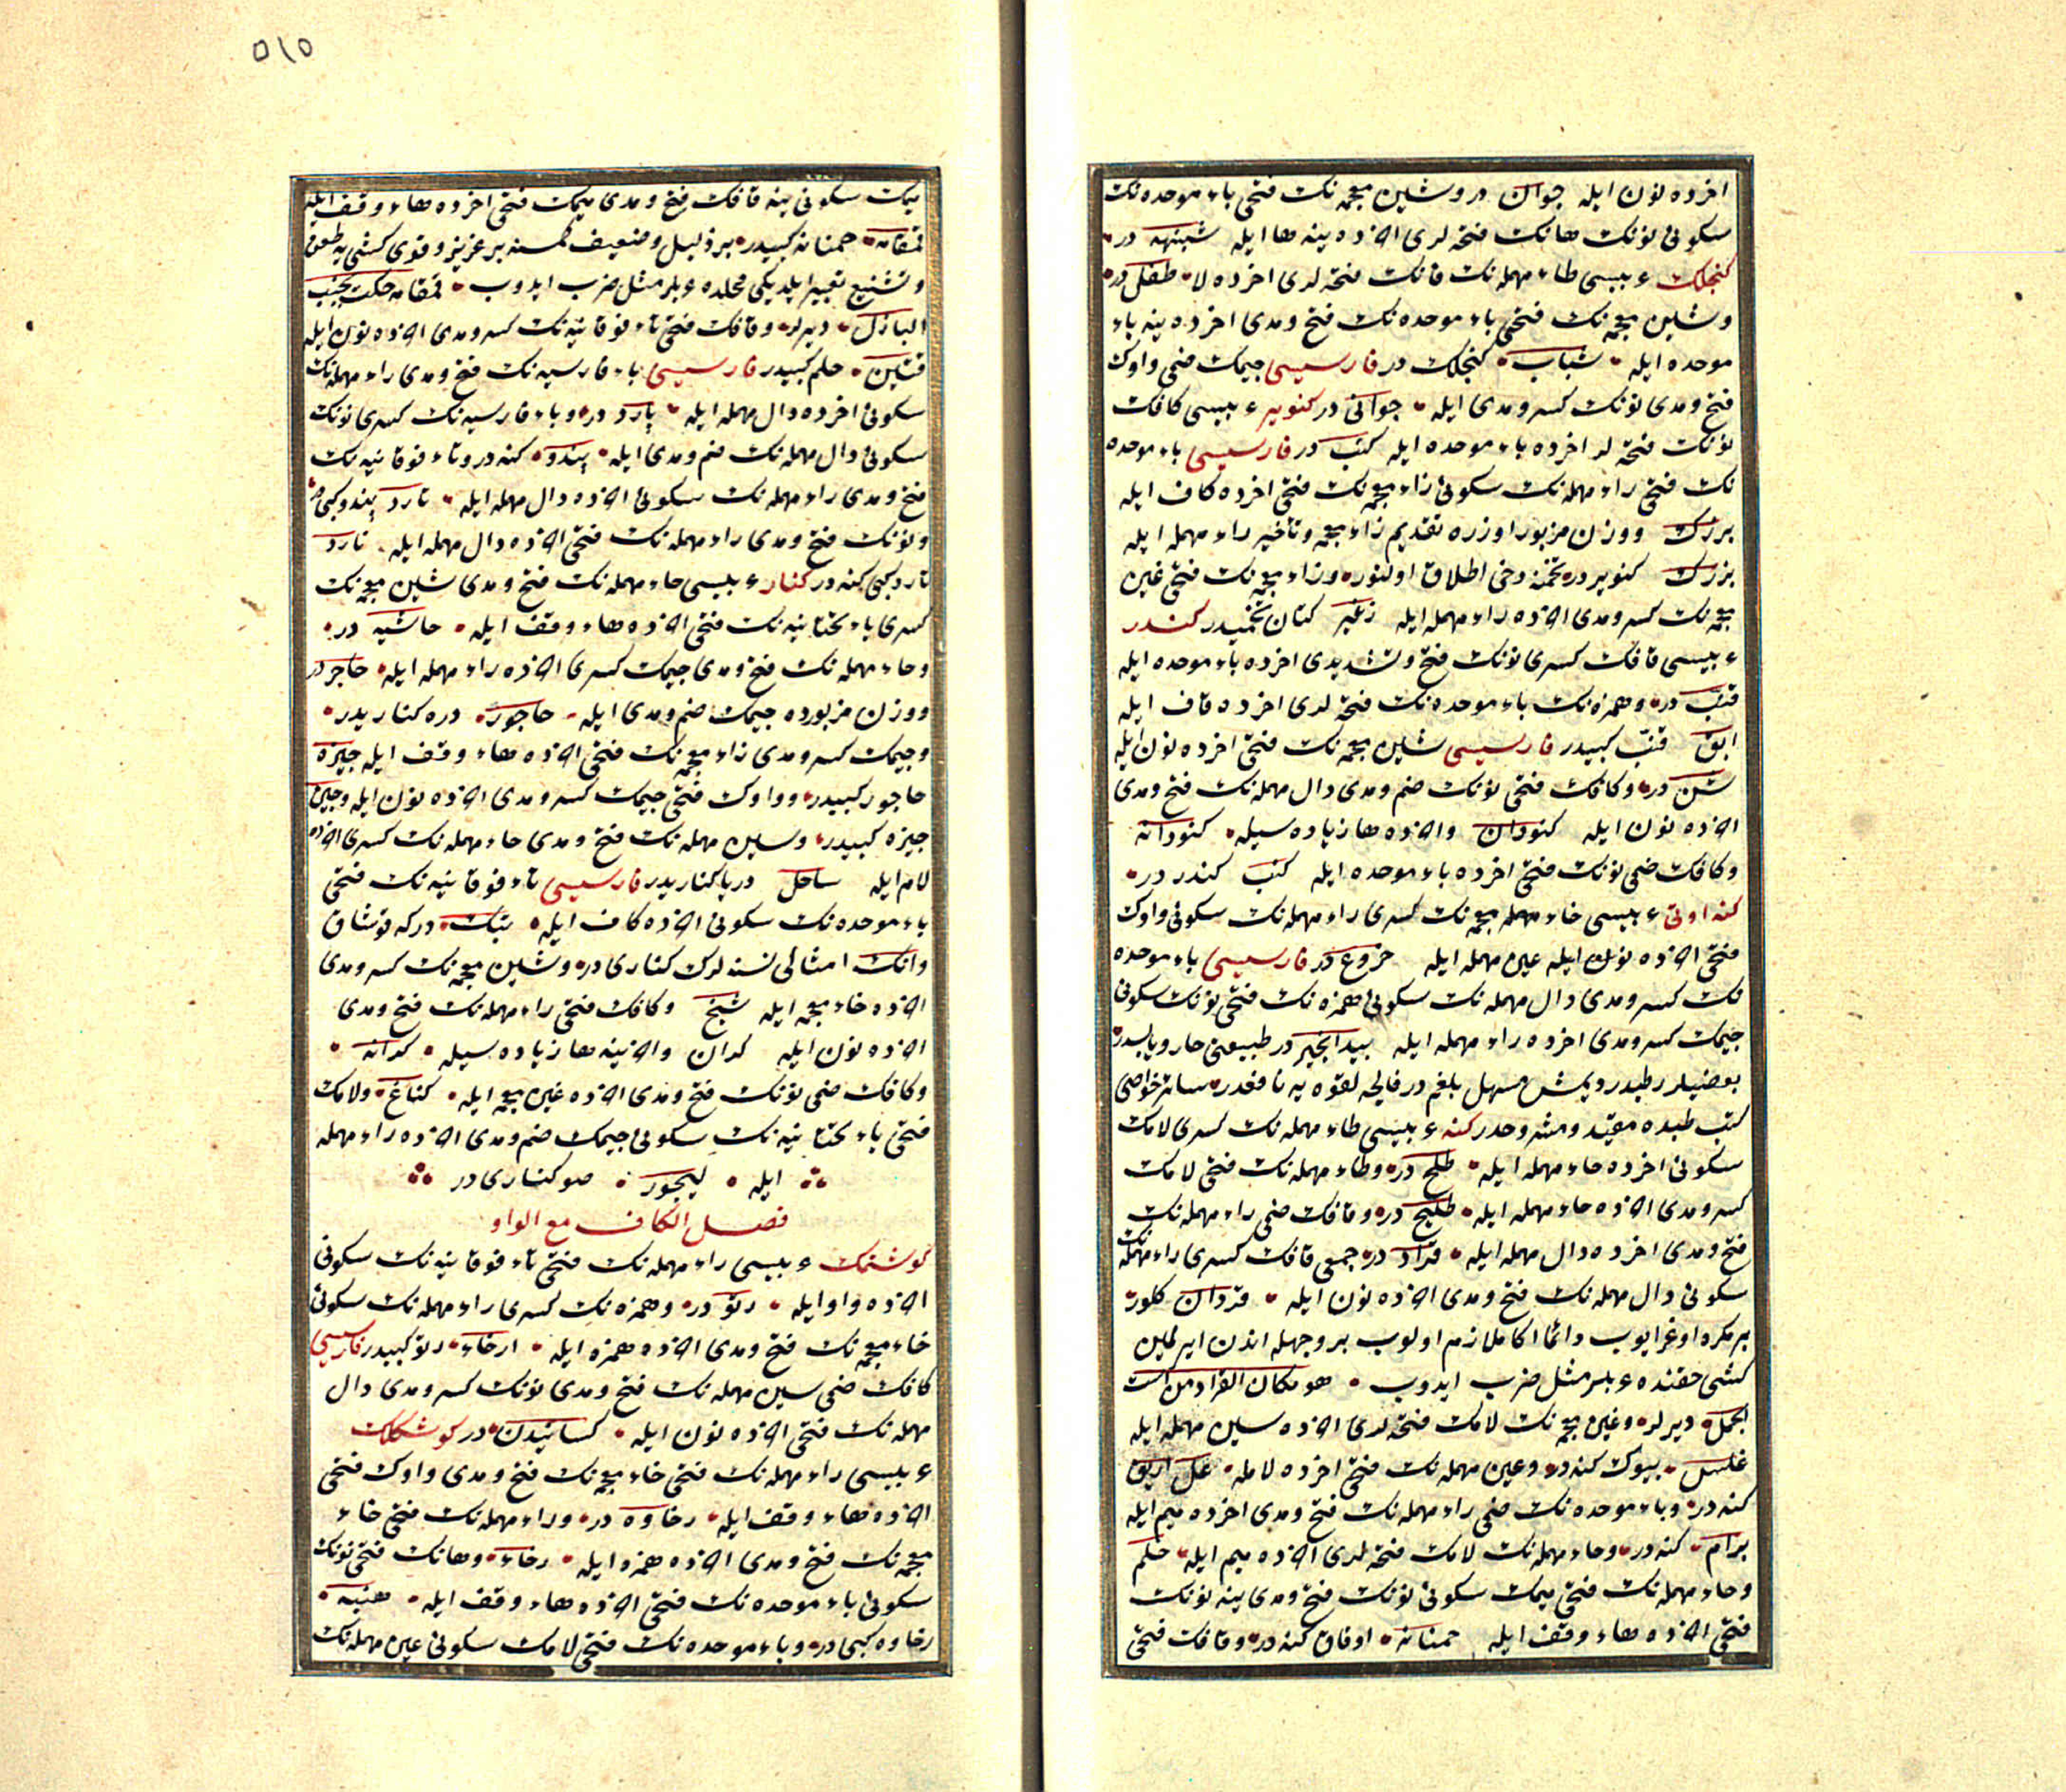 اخرده نون ايله جوان در وشين معجمه نك فتحى باء موحده نك
سكونى نونك هانك فتحه لرى اخرده ينه ها ايله شبنهه در
كنجلك عربيسى طاء مهمله نك فانك فتحه لرى اخرده لا طفل در
وشين معجمه نك فتحى باء موحده نك فتح ومدى اخرده ينه باء
موحده ايله شباب كنجلك در فارسيسى جيمك ضمى واوك
فتح ومدى نونك كسر ومدى ايله جوانى در كنوير عربيسى كافك
نونك فتحه لر اخرده باء موحده ايله كنب در فارسيسى باء موحده
نك فتحى راء مهمله نك سكونى زاء معجمه نك فتحى اخرده كاف ايله
برزك ووزن مزبور اوزره تقديم زاء معجمه وتأخير راء مهمله ايله
بزرك كنوير در تخمنه دخى اطلاق اولنور وزاء معجمه نك فتحى غين
معجمه نك كسر ومدى اخرده راء مهمله ايله زغير كتان تخميدر كندر
عربيسى قافك كسرى نونك فتح وتشديدى اخرده باء موحده ايله
قنب در وهمزه نك باء موحده نك فتحه لرى اخرده قاف ايله
ابق قنب كبيدر فارسيسى شين معجمه نك فتحى اخرده نون ايله
شن در وكافك فتحى نونك ضم ومدى دال مهمله نك فتح ومدى
اخرده نون ايله كنودان واخرده ها زياده سيله كنودانه
وكافك ضمى نونك فتحى اخرده باء موحده ايله كنب كندر در
كنه اوتى عربيسى خاء مهمله معجمه نك كسرى راء مهمله نك سكونى واوك
فتحى اخرده نون ايله عين مهمله ايله خروع در فارسيسى باء موحده
نك كسر ومدى دال مهمله نك سكونى همزه نك فتحى نونك سكونى
جيمك كسر ومدى اخرده راء مهمله ايله بيد انجير در طبيعتى حار ويابسدر
بعضيلر رطبدر ديمش مسهل بلغم در فالجه لقوه يه نافعدر سائر خواصى
كتب طبده مقيد ومشروحدر كنه عربيسى طاء مهمله نك كسرى لامك
سكونى اخرده حاء مهمله ايله طلح در وطاء مهمله نك فتحى لامك
كسر ومدى اخرده حاء مهمله ايله طليح در وقافك ضمى راء مهمله نك
فتح ومدى اخرده دال مهمله ايله قراد در جمعى قافك كسرى راء مهمله نك
سكونى دال مهمله نك فتح ومدى اخرده نون ايله قردان كلور
بر مكره اوغرايوب دائما اكا ملازم اولوب بر وجهله اندن ايرلمين
كشى حقنده عربلر مثل ضرب ايدوب هو مكان القراد من است
الجمل ديرلر وغين معجمه نك لامك فتحه لرى اخرده سين مهمله ايله
غلس بيوك كنه در وعين مهمله نك فتحى اخرده لامله عل اريق
كنه در وباء موحده نك ضمى راء مهمله نك فتح ومدى اخرده ميم ايله
برام كنه در وحاء مهمله نك لامك فتحه لرى اخرده ميم ايله حلم
وحاء مهمله نك فتحى ميمك سكونى نونك فتح ومدى ينه نونك
فتحى اخرده هاء وقف ايله حمنانه اوفاق كنه در وقافك فتحى
٥١٥
ميمك سكونى ينه قافك فتح ومدى ميمك فتحى اخرده هاء وقف ايله
قمقامه حمنانه كبيدر بر ذليل وضعيف كمسنه بر عزيز وقوى كشى يه طعن
وتشنيع تعبير ايلديكى محلده عربلر مثل ضرب ايدوب قمقامه حكت بجنب
البازل ديرلر وقافك فتحى تاء فوقانيه نك كسر ومدى اخرده نون ايله
قتين حلم كبيدر فارسيسى باء فارسيه نك فتح ومدى راء مهمله نك
سكونى اخرده دال مهمله ايله پارد در وباء فارسيه نك كسرى نونك
سكونى دال مهمله نك ضم ومدى ايله پندو كنه در وتاء فوقانيه نك
فتح ومدى راء مهمله نك سكونى اخرده دال مهمله ايله تارد پندو كبى در
ونونك فتح ومدى راء مهمله نك فتحى اخرده دال مهمله ايله نارد
تارد كبى كنه در كنار عربيسى حاء مهمله نك فتح ومدى شين معجمه نك
كسرى ياء تحتانيه نك فتحى اخرده هاء وقف ايله حاشيه در
وحاء مهمله نك فتح ومدى جيمك كسرى اخرده راء مهمله ايله حاجر در
ووزن مزبورده جيمك ضم ومدى ايله حاجور دره كناريدر
وجيمك كسر ومدى زاء معجمه نك فتحى اخرده هاء وقف ايله جيزه
حاجور كبيدر وواوك فتحى جيمك كسر ومدى اخرده نون ايله وجين
جيزه كبيدر وسين مهمله نك فتح ومدى حاء مهمله نك كسرى اخرده
لام ايله ساحل دريا كناريدر فارسيسى تاء فوقانيه نك فتحى
باء موحده نك سكونى اخرده كاف ايله تبك در كه قوشاق
وانك امثالى نسنه لرك كنارى در وشين معجمه نك كسر ومدى
اخرده خاء معجمه ايله شيخ وكافك فتحى راء مهمله نك فتح ومدى
اخرده نون ايله كران واخرينه ها زياده سيله كرانه
وكافك ضمى نونك فتح ومدى اخرده غين معجمه ايله كناغ ولامك
فتحى ياء تحتانيه نك سكونى جيمك ضم ومدى اخرده راء مهمله
ايله ليجور صو كنارى در
فصل الكاف مع الواو
كوشتمك عربيسى راء مهمله نك فتحى تاء فوقانيه نك سكونى
اخرده واو ايله رتو در وهمزه نك كسرى راء مهمله نك سكونى
خاء معجمه نك فتح ومدى اخرده همزه ايله ارخاء رتو كبيدر فارسيسى
كافك ضمى سين مهمله نك فتح ومدى نونك كسر ومدى دال
مهمله نك فتحى اخرده نون ايله كسانيدن در كوشكلك
عربيسى راء مهمله نك فتحى خاء معجمه نك فتح ومدى واوك فتحى
اخرده هاء وقف ايله رخاوه در وراء مهمله نك فتحى خاء
معجمه نك فتح ومدى اخرده همزه ايله رخاء وهانك فتحى نونك
سكونى باء موحده نك فتحى اخرده هاء وقف ايله هنبه
رخاوه كبى در وباء موحده نك فتحى لامك سكونى عين مهمله نك